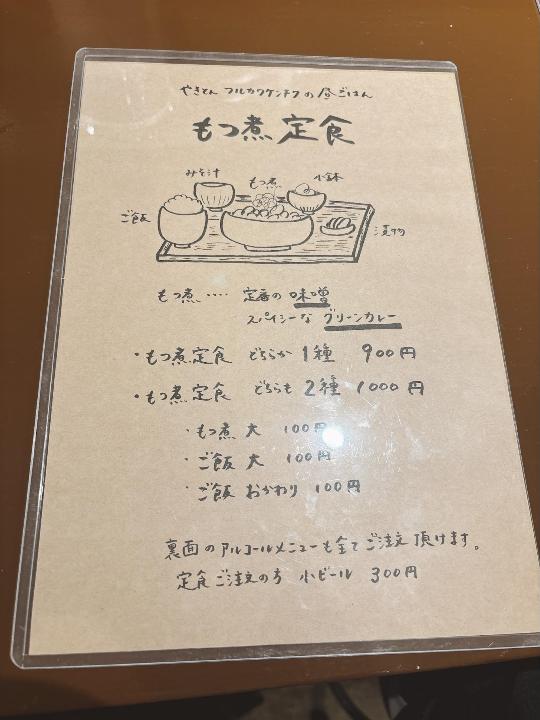 やきとん フルカワケンチクの昼ごはん
もつ煮定食
みそ汁
もつ煮
小鉢
ご飯
漬物
もつ煮‥‥ 定番の味噌
スパイシーなグリーンカレー
・もつ煮定食 どちらか1種 900円
・もつ煮定食 どちらも2種 1000円
・もつ煮 大 100円
・ご飯 大 100円
・ご飯 おかわり 100円
裏面のアルコールメニューも全てご注文頂けます。
定食ご注文の方 小ビール 300円